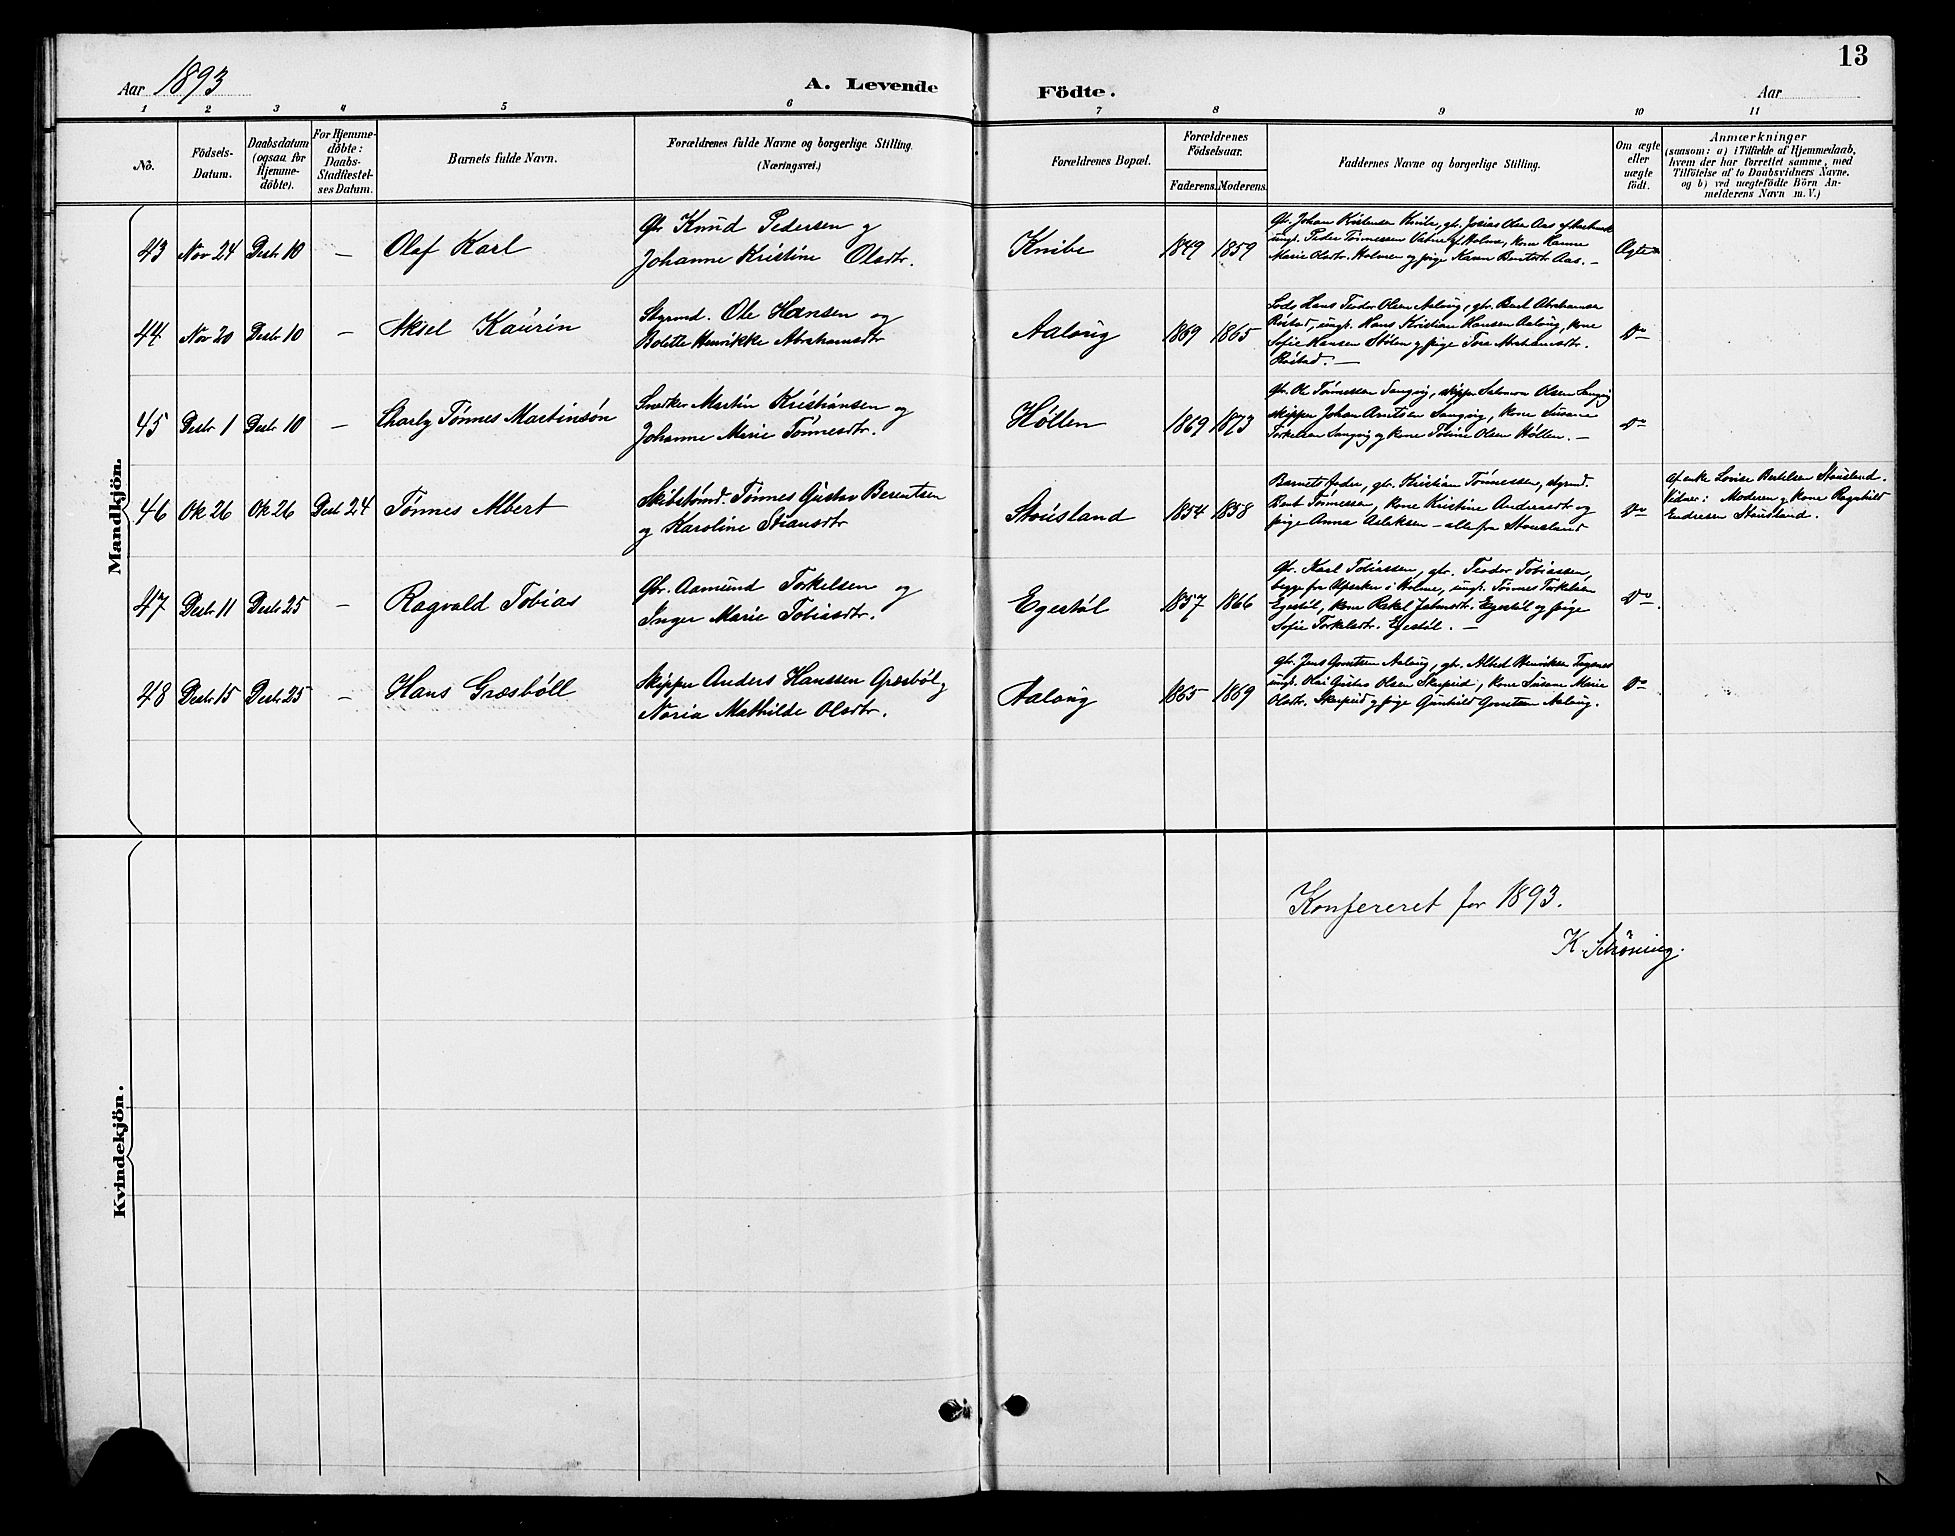 13
Aar 1893
A. Levende Födte.
Aar
1 2 3 4 5 6 7 8 9 10 11
No.
Födsels-Datum.
Daabsdatum (ogsaa for Hjemme-döbte).
For Hjemme-döbte: Daabs-Stadfæstel-ses Datum.
Barnets fulde Navn.
Forældrenes fulde Navne og borgerlige Stilling.
(Næringsvei.)
Forældrenes Bopæl.
Forældrenes Födselsaar.
Faderens. Moderens.
Faddernes Navne og borgerlige Stilling.
Om ægte eller uægte födt.
Anmærkninger
(saasom: a) i Tilfælde af Hjemmedaab,
hvem der har forrettet samme, med
Tilföielse af to Daabsvidners Navne.
og b) ved uægtefödte Börn An-
melderens Navn m. V.)
Mandkjön.
43 Nov 24 Desbr 10 – Olaf Karl
Gbr Knud Pedersen og
Johanne Kristine Olsdtr.
Knibe 1849 1859
Gbr. Johan Kristensen Knibe, gbr. Josias Olsen Aas af
ungk. Peder Tønnessen Vatne af Holme, kone Hanne
Marie Olsdtr. Holmen og pige Karen Berntsdtr Aas. –
Ægte
44 Nov 20 Desbr 10 – Aksel Kaurin
Styrmd. Ole Hansen og
Bolette Henrikke Abrahamsdtr
Aaloug 1869 1865
Lods Hans Teodor Olsen Aaloug, gbr. Berul Abrahamsen
Røstad, ungk. Hans Kristian Hansen Aaloug, kone
Sofie Hansen Stølen og pige Tora Abrahamsdtr.
Røstad. –
Do
45 Desbr 1 Desbr 10 – Charly Tønnes Martinsøn
Snedker Martin Kristiansen og
Johanne Marie Tønnesdtr.
Høllen 1869 1873
Gbr. Ole Tønnessen Sangvig, skipper Salomon Olsen Sangvig
skipper Johan Arntsen Sangvig, kone Susane
Torkelsen Sangvig og kone Tobine Olsen Høllen. –
Do
46 Ok 26 Ok 26 Desbr 24 Tønnes Albert
Skibstømd. Tønnes Gustav Berentsen
og Karoline Stiansdtr
Stousland 1854 1858
Barnets fader, gbr. Kristian Tønnessen, styrmd.
Bent Tønnessen, kone Kristine Andersdtr og
pige Anna Aslaksen – alle fra Stousland
Do
af enke Lovise Bertelsen Stousland.
Vidner: Moderen og kone Ragnhild
Endresen Stousland.
47 Desbr 11 Desbr 25 – Ragvald Tobias
Gbr. Aamund Torkelsen og
Inger Marie Tobiasdtr.
Egestøl 1857 1866
Gbr. Karl Tobiassen, gbr. Teodor Tobiassen,
begge fra Upsaker i Holme, ungk. Tønnes Torkelsen
Egestøl, kone Rakel Jakobsdtr. Egestøl og pige
Sofie Torkelsdtr. Egestøl. –
Do
48 Desbr 15 Desbr 25 – Hans Græsbøll
Skipper Anders Hanssen Græsbøl og
Noria Mathilde Olsdtr.
Aaloug 1865 1869
gbr. Jens Gomtsen Aaloug, gbr. Alfred Henriksen
ungk. Olai Gustav Olsen Skarpeid, kone Susane Marie
Olsdtr. Skarpeid og pige Gunhild Aaloug.
Do
Kvindekjön.
Konfereret for 1893.
K. Schöning.